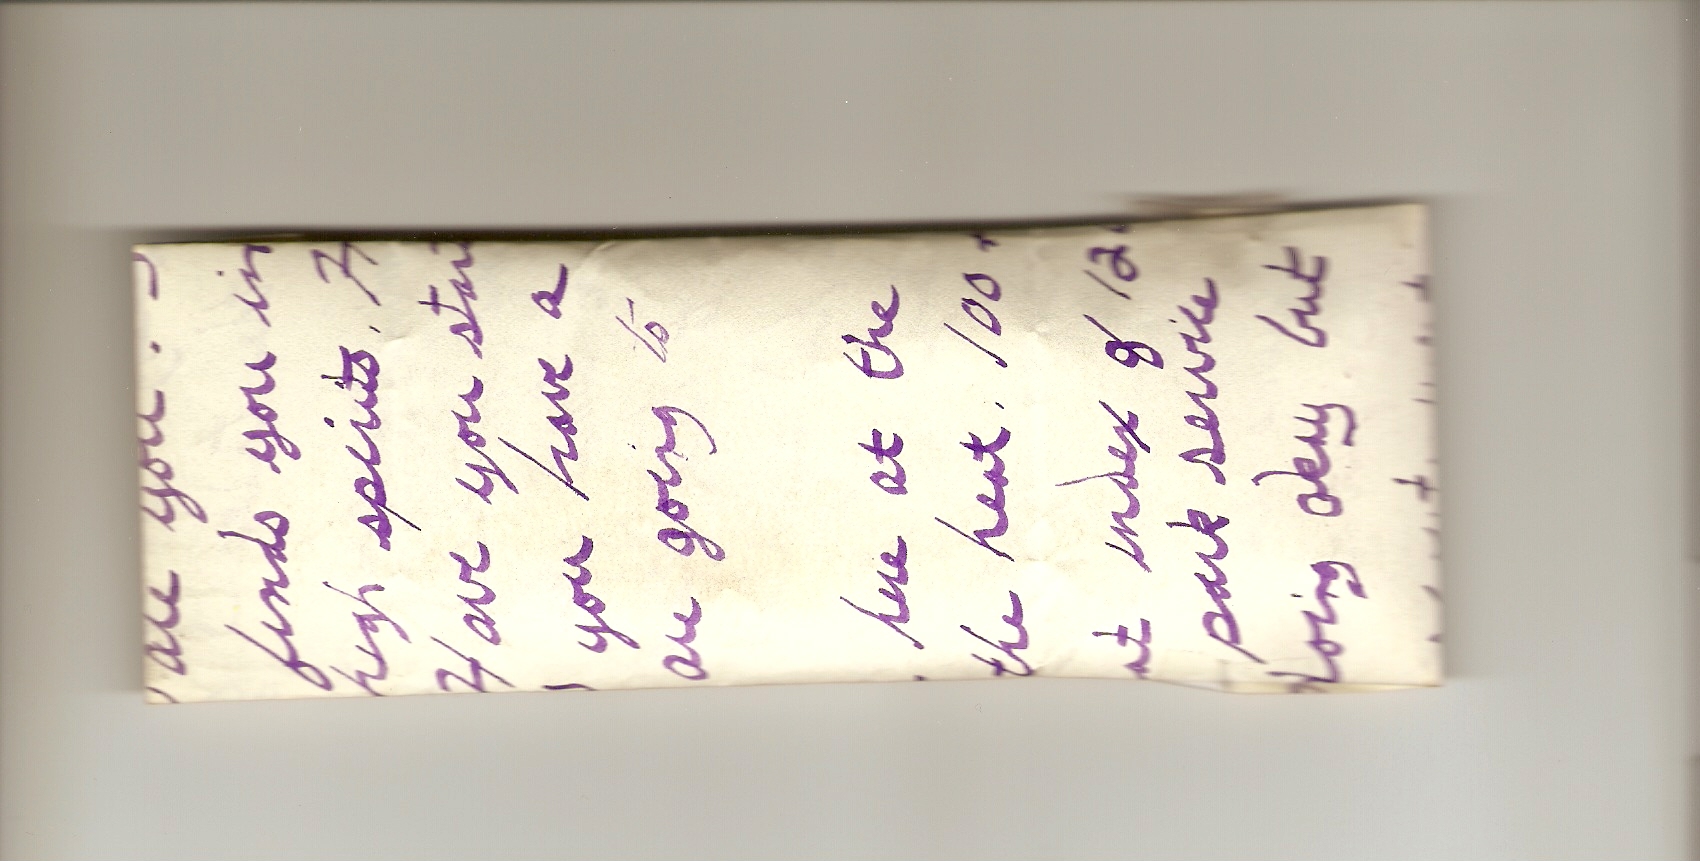 are you.
finds you in
high spirits. H
Have you star
you have a
are going to
here at the
the heat. 100+
at index of 12
park service
doing okay but